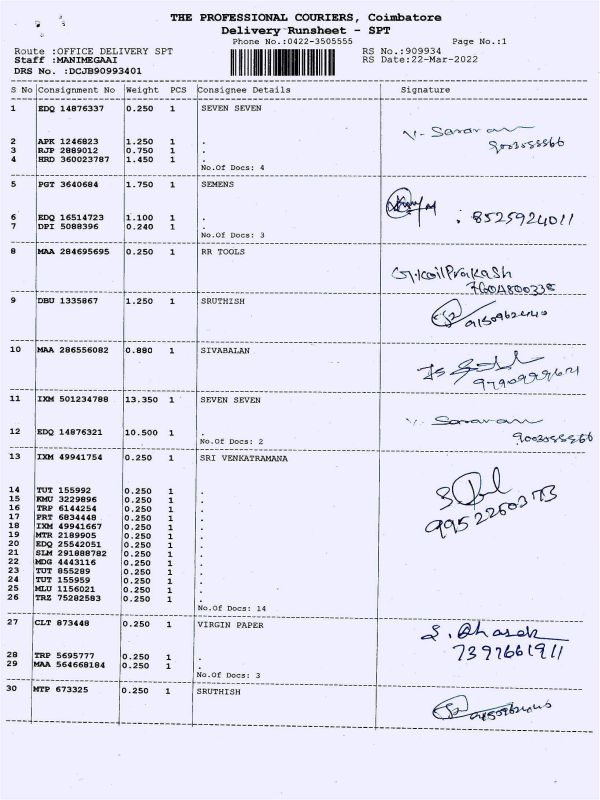 THE PROFESSIONAL COURIERS, Coimbatore
Delivery Runsheet - SPT
Phone No.:0422-3505555 Page No.:1
Route :OFFICE DELIVERY SPT RS No.:909934
Staff :MANIMEGAAI RS Date:22-Mar-2022
DRS No. :DCJB90993401
S No Consignment No Weight PCS Consignee Details Signature
1 EDQ 14876337 0.250 1 SEVEN SEVEN
V. Saravan
2 APK 1246823 1.250 1 .
3 RJP 2889012 0.750 1 .
4 HRD 360023787 1.450 1 .
No.Of Docs: 4
5 PGT 3640684 1.750 1 SEMENS
6 EDQ 16514723 1.100 1 .
: 8525924011
7 DPI 5088396 0.240 1 .
No.Of Docs: 3
8 MAA 284695695 0.250 1 RR TOOLS
G.KoilPrakash
7604800338
9 DBU 1335867 1.250 1 SRUTHISH
10 MAA 286556082 0.880 1 SIVABALAN
11 IXM 501234788 13.350 1 SEVEN SEVEN
V. Saravan
12 EDQ 14876321 10.500 1 .
No.Of Docs: 2
13 IXM 49941754 0.250 1 SRI VENKATRAMANA
14 TUT 155992 0.250 1 .
15 KMU 3229896 0.250 1 .
16 TRP 6144254 0.250 1 .
17 PRT 6834448 0.250 1 .
18 IXM 49941667 0.250 1 .
19 MTR 2189905 0.250 1 .
20 EDQ 25542051 0.250 1 .
21 SLM 291888782 0.250 1 .
22 MDG 4443116 0.250 1 .
23 TUT 855289 0.250 1 .
24 TUT 155959 0.250 1 .
25 MLU 1156021 0.250 1 .
26 TRZ 75282583 0.250 1 .
No.Of Docs: 14
27 CLT 873448 0.250 1 VIRGIN PAPER
7397661911
28 TRP 5695777 0.250 1 .
29 MAA 564668184 0.250 1 .
No.Of Docs: 3
30 MTP 673325 0.250 1 SRUTHISH